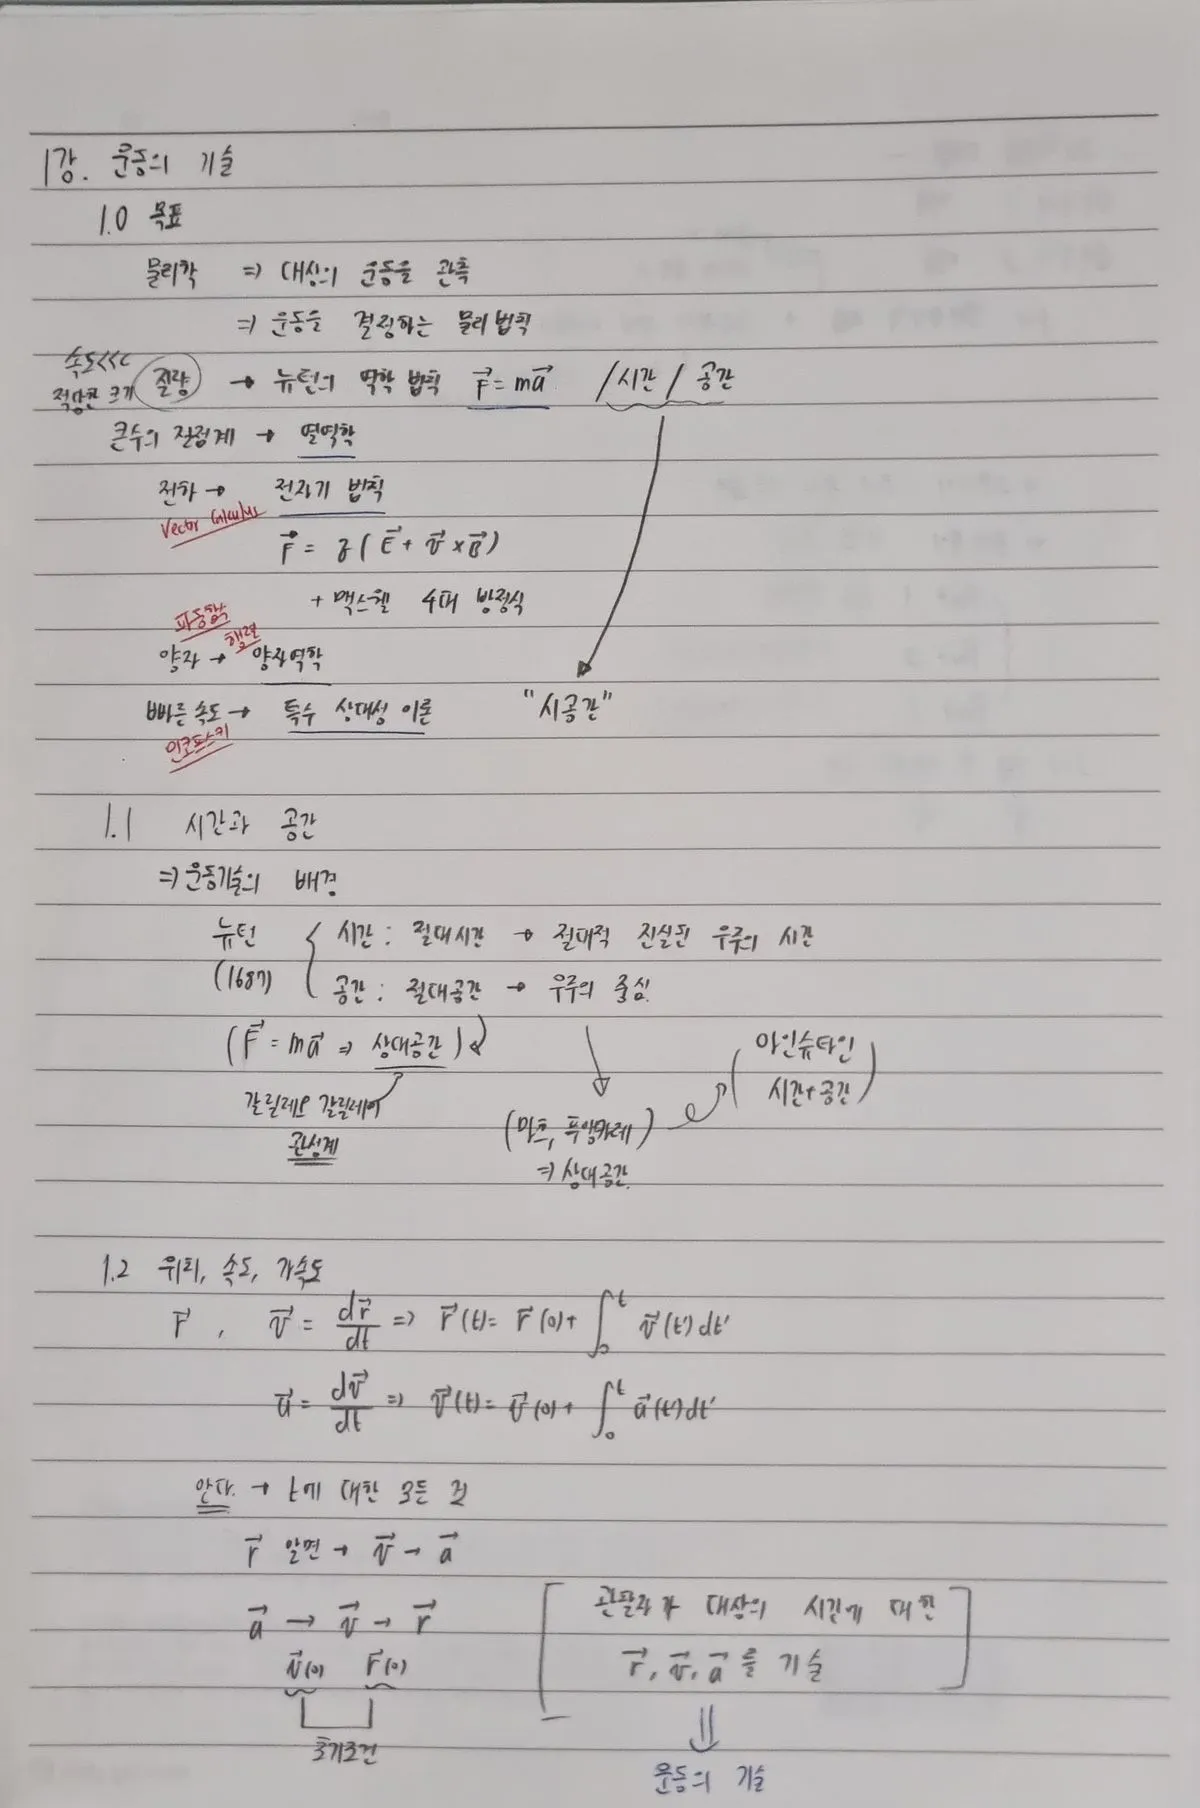 1강. 운동의 기술
1.0 목표
물리학 ⇒ 대상의 운동을 관측
⇒ 운동을 결정하는 물리법칙
속도<<c
적당한 크기 질량 → 뉴턴의 역학 법칙 F⃗ = ma⃗ / 시간 / 공간
큰수의 질점계 → 열역학
전하 → 전자기 법칙
Vector Calculus
F⃗ = q(E⃗ + v⃗ × B⃗)
+ 맥스웰 4대 방정식
파동함수
행렬
양자 → 양자역학
빠른 속도 → 특수 상대성 이론 "시공간"
민코프스키
1.1 시간과 공간
⇒ 운동기술의 배경
뉴턴 { 시간 : 절대시간 → 절대적 진실된 우주의 시간
(1687) 공간 : 절대공간 → 우주의 중심.
(F⃗ = ma⃗ ⇒ 상대공간)
아인슈타인
시간+공간
갈릴레오 갈릴레이
관성계
(마흐, 푸앵카레)
⇒ 상대공간.
1.2 위치, 속도, 가속도
r⃗, v⃗ = dr⃗/dt ⇒ r⃗(t) = r⃗(0) + ∫₀ᵗ v⃗(t')dt'
a⃗ = dv⃗/dt ⇒ v⃗(t) = v⃗(0) + ∫₀ᵗ a⃗(t')dt'
안다. → t에 대한 모든 것
r⃗ 알면 → v⃗ → a⃗
a⃗ → v⃗ → r⃗
v⃗(0) r⃗(0)
초기조건
[관찰자가 대상의 시간에 대한
r⃗, v⃗, a⃗ 를 기술]
⇓
운동의 기술